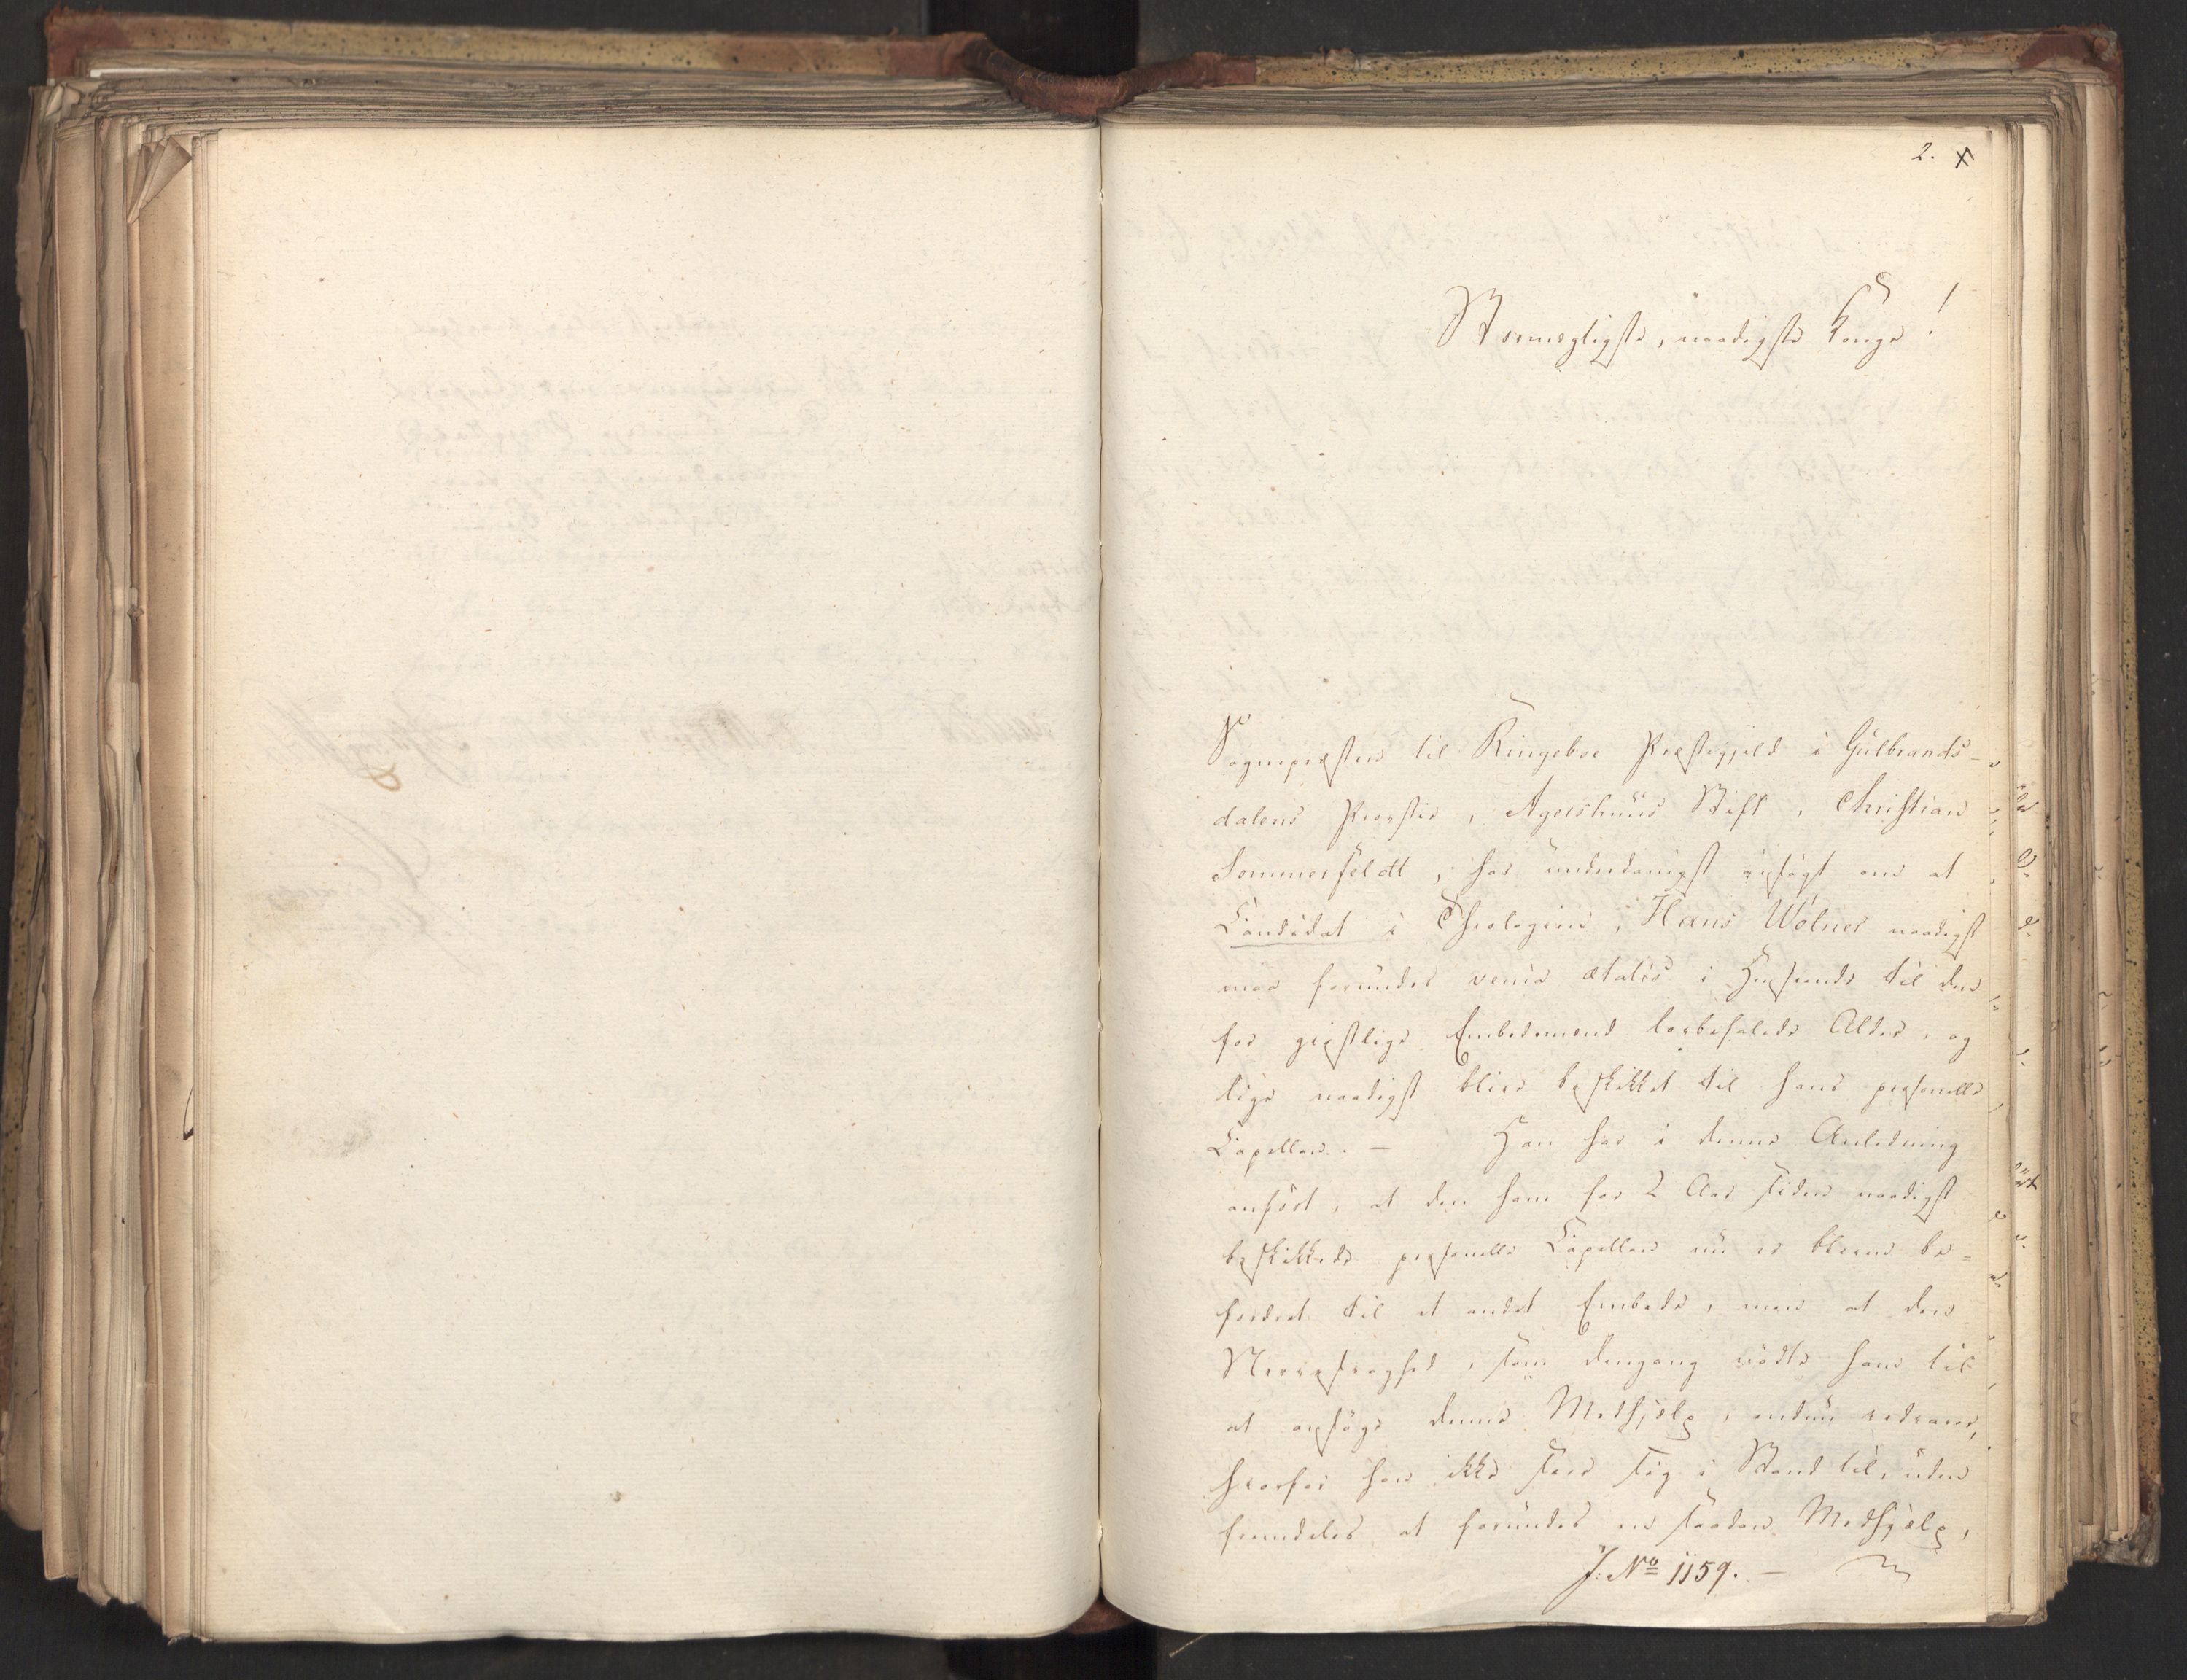 2. X
Stormægtigste, naadigste Konge!
Sognepræsten til Ringeboe Præstegjæld i Gulbrands-
dalens Provstie, Agershuus Stift, Christian
Sommerfeldt, har underdanigst ansøgt om at
Candidat i Theologien, Hans Wolner naadigst
maa forundes venia ætatis i Henseende til den
for geistlige Embedsmænd lovbefalede Alder, og
lige naadigst blive beskikket til hans personelle
Capellan. – Han har i denne Anledning
anført, at den ham for 2 Aar siden naadigst
beskikkede personelle Capellan nu er bleven be-
fordret til et andet Embede, men at den
Nervesvaghed, som dengang nødte ham til
at ansøge denne Medhjelp, endnu vedvarer,
hvorfor han ikke seer sig i Stand til, uden
fremdeles at forundes en saadan Medhjælp,
J: No 1159. –